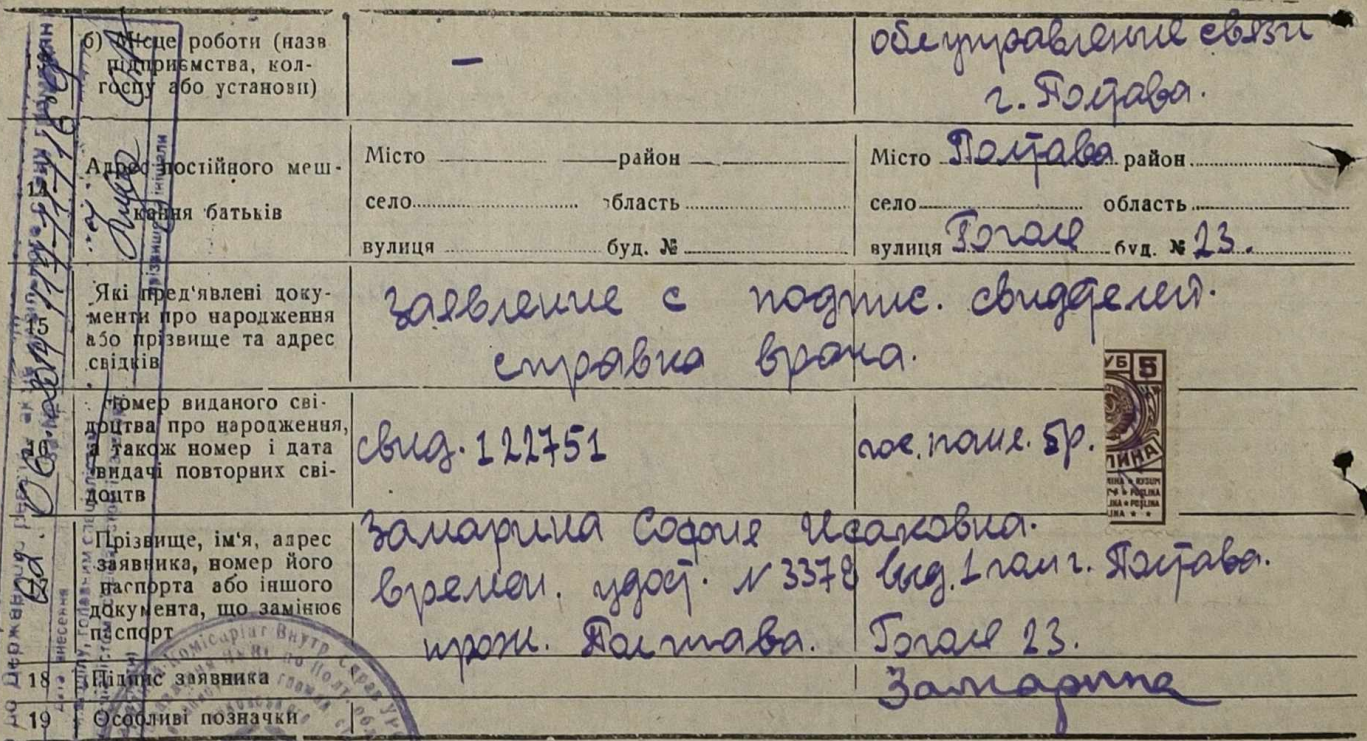 б) Місце роботи (назв
підприємства, кол-
госпу або установи)
—
облуправление связи
г. Полтава.
14
Адрес постійного меш-
кання батьків
Місто район
село область
вулиця буд. №
Місто Полтава район
село область
вулиця Гоголя буд. № 23.
15
Які пред'явлені доку-
менти про народження
або прізвище та адрес
свідків
Заявление с подпис. свидетелей.
справка врача.
16
Номер виданого сві-
доцтва про народження,
а також номер і дата
видачі повторних сві-
доцтв
свид. 122751
гос. пошл. 5р.
УБ 5
ЛИНА
Прізвище, ім'я, адрес
заявника, номер його
паспорта або іншого
документа, що замінює
паспорт
Замарина София Исаковна.
времен. удост. № 3378 выд. 1 гом г. Полтава.
прож. Полтава. Гоголя 23.
18 Підпис заявника
Замарина
19 Особливі позначки
Комісаріат Внутр. Справ УРСР